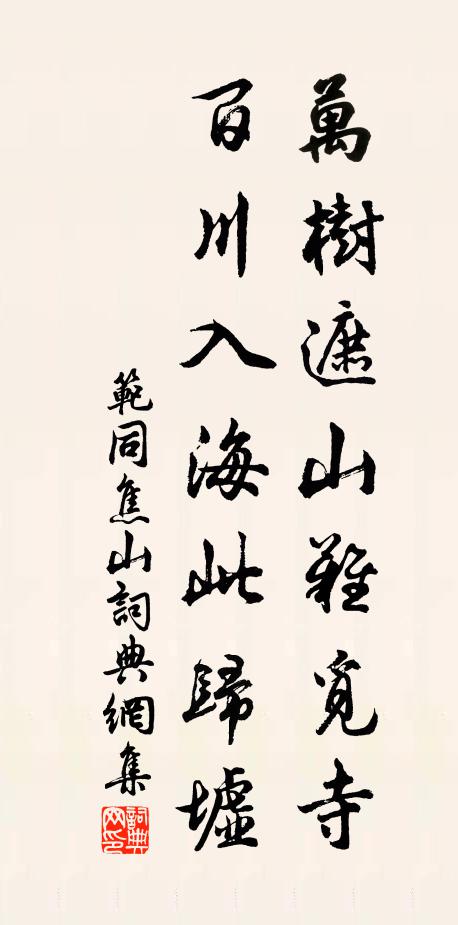 萬樹遮山難覓寺
百川入海此歸墟
範同焦山詞典網集
詞典網印